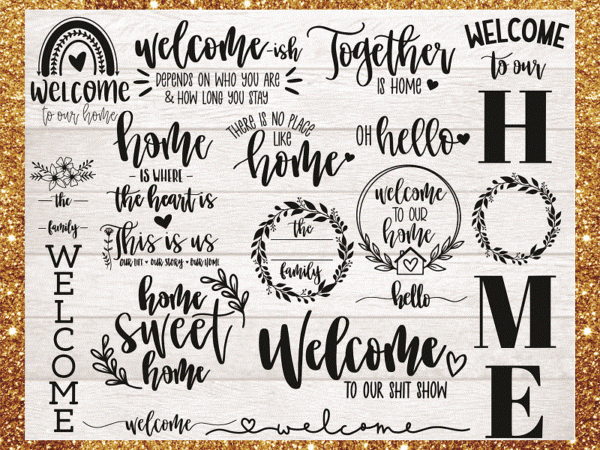 WELCOME
to our home
welcome-ish
DEPENDS ON WHO YOU ARE
& HOW LONG YOU STAY
Together
IS HOME
WELCOME
to our
H
M
E
home
- IS WHERE -
the heart is
THERE IS NO PLACE
LIKE
home
OH hello
the
family
WELCOME
This is us
OUR LIFE • OUR STORY • OUR HOME
the
family
welcome
TO OUR
home
hello
home
sweet
home
Welcome
TO OUR SHIT SHOW
welcome
welcome